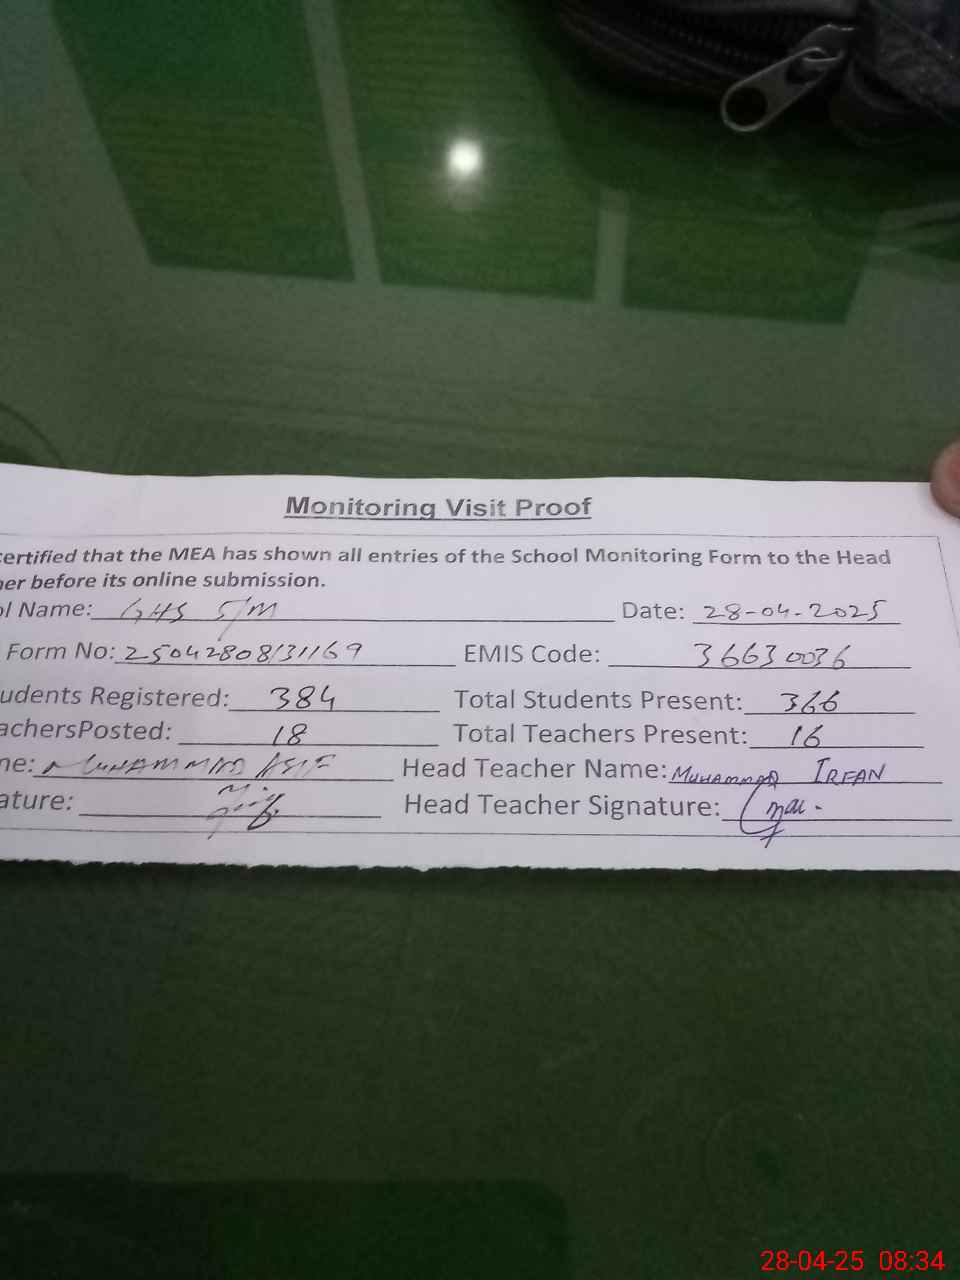 Monitoring Visit Proof
certified that the MEA has shown all entries of the School Monitoring Form to the Head
her before its online submission.
ol Name: GHS 5/M Date: 28-04-2025
Form No: 25042808131169 EMIS Code: 36630036
udents Registered: 384 Total Students Present: 366
achersPosted: 18 Total Teachers Present: 16
me: MUHAMMAD ASIF Head Teacher Name: MUHAMMAD IRFAN
ature: Head Teacher Signature:
28-04-25 08:34